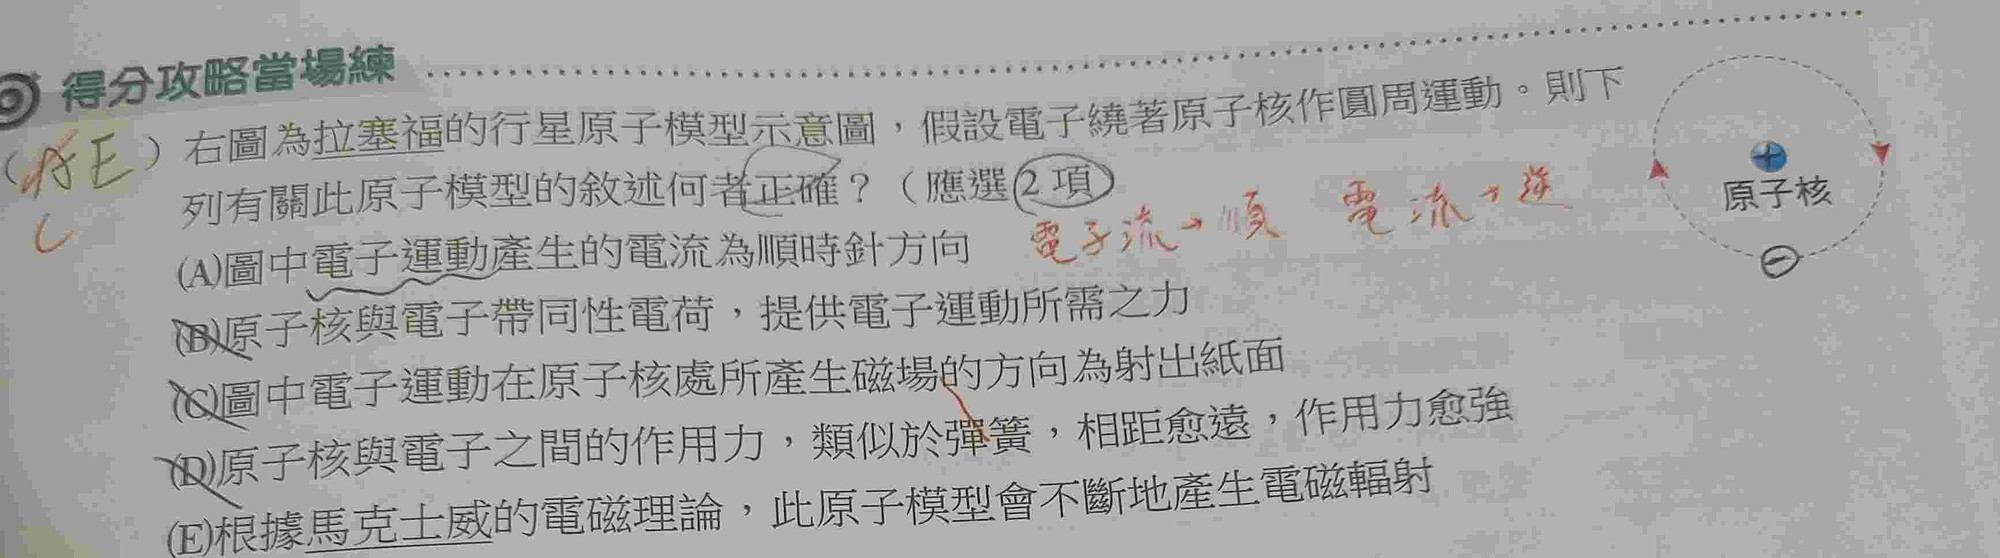 得分攻略當場練
(AE) 右圖為拉塞福的行星原子模型示意圖,假設電子繞著原子核作圓周運動。則下
C
列有關此原子模型的敘述何者正確?(應選2項)
電子流→順 電流→逆
(A)圖中電子運動產生的電流為順時針方向
(B)原子核與電子帶同性電荷,提供電子運動所需之力
(C)圖中電子運動在原子核處所產生磁場的方向為射出紙面
(D)原子核與電子之間的作用力,類似於彈簧,相距愈遠,作用力愈強
(E)根據馬克士威的電磁理論,此原子模型會不斷地產生電磁輻射
+
原子核
−